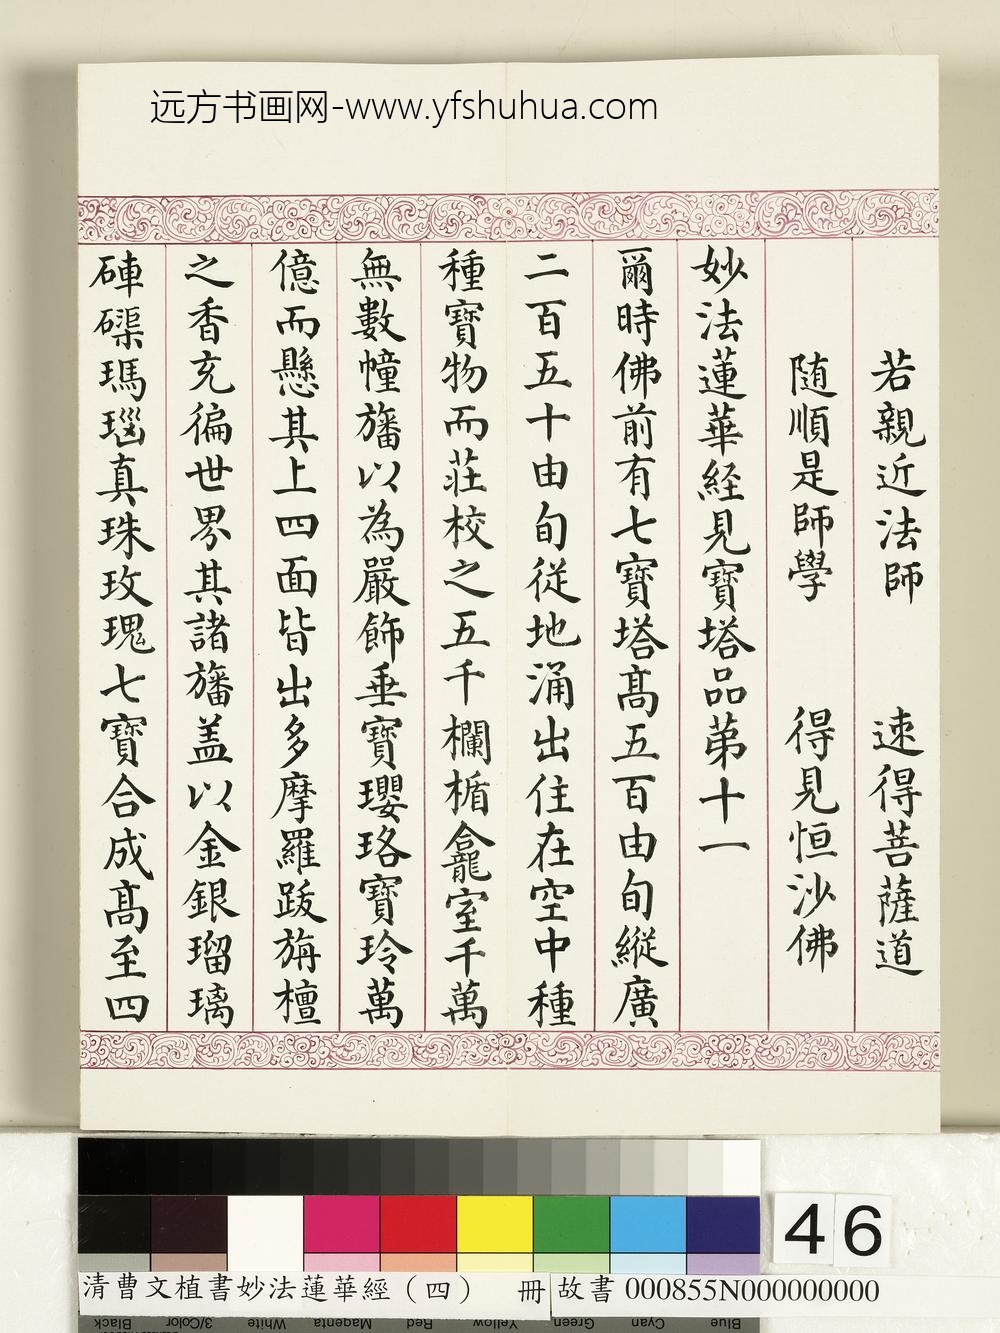 远方书画网-www.yfshuhua.com
若親近法師 速得菩薩道
随順是師學 得見恒沙佛
妙法蓮華經見寶塔品第十一
爾時佛前有七寶塔髙五百由旬縱廣
二百五十由旬從地涌出住在空中種
種寶物而莊校之五千欄楯龕室千萬
無數幢旛以為嚴飾垂寶瓔珞寶玲萬
億而懸其上四面皆出多摩羅跋旃檀
之香充徧世界其諸旛盖以金銀瑠璃
硨磲瑪瑙真珠玫瑰七寶合成髙至四
46
清曹文植書妙法蓮華經（四） 冊
故書 000855N000000000
Black 3/Color White Magenta Red Yellow Green Cyan Blue